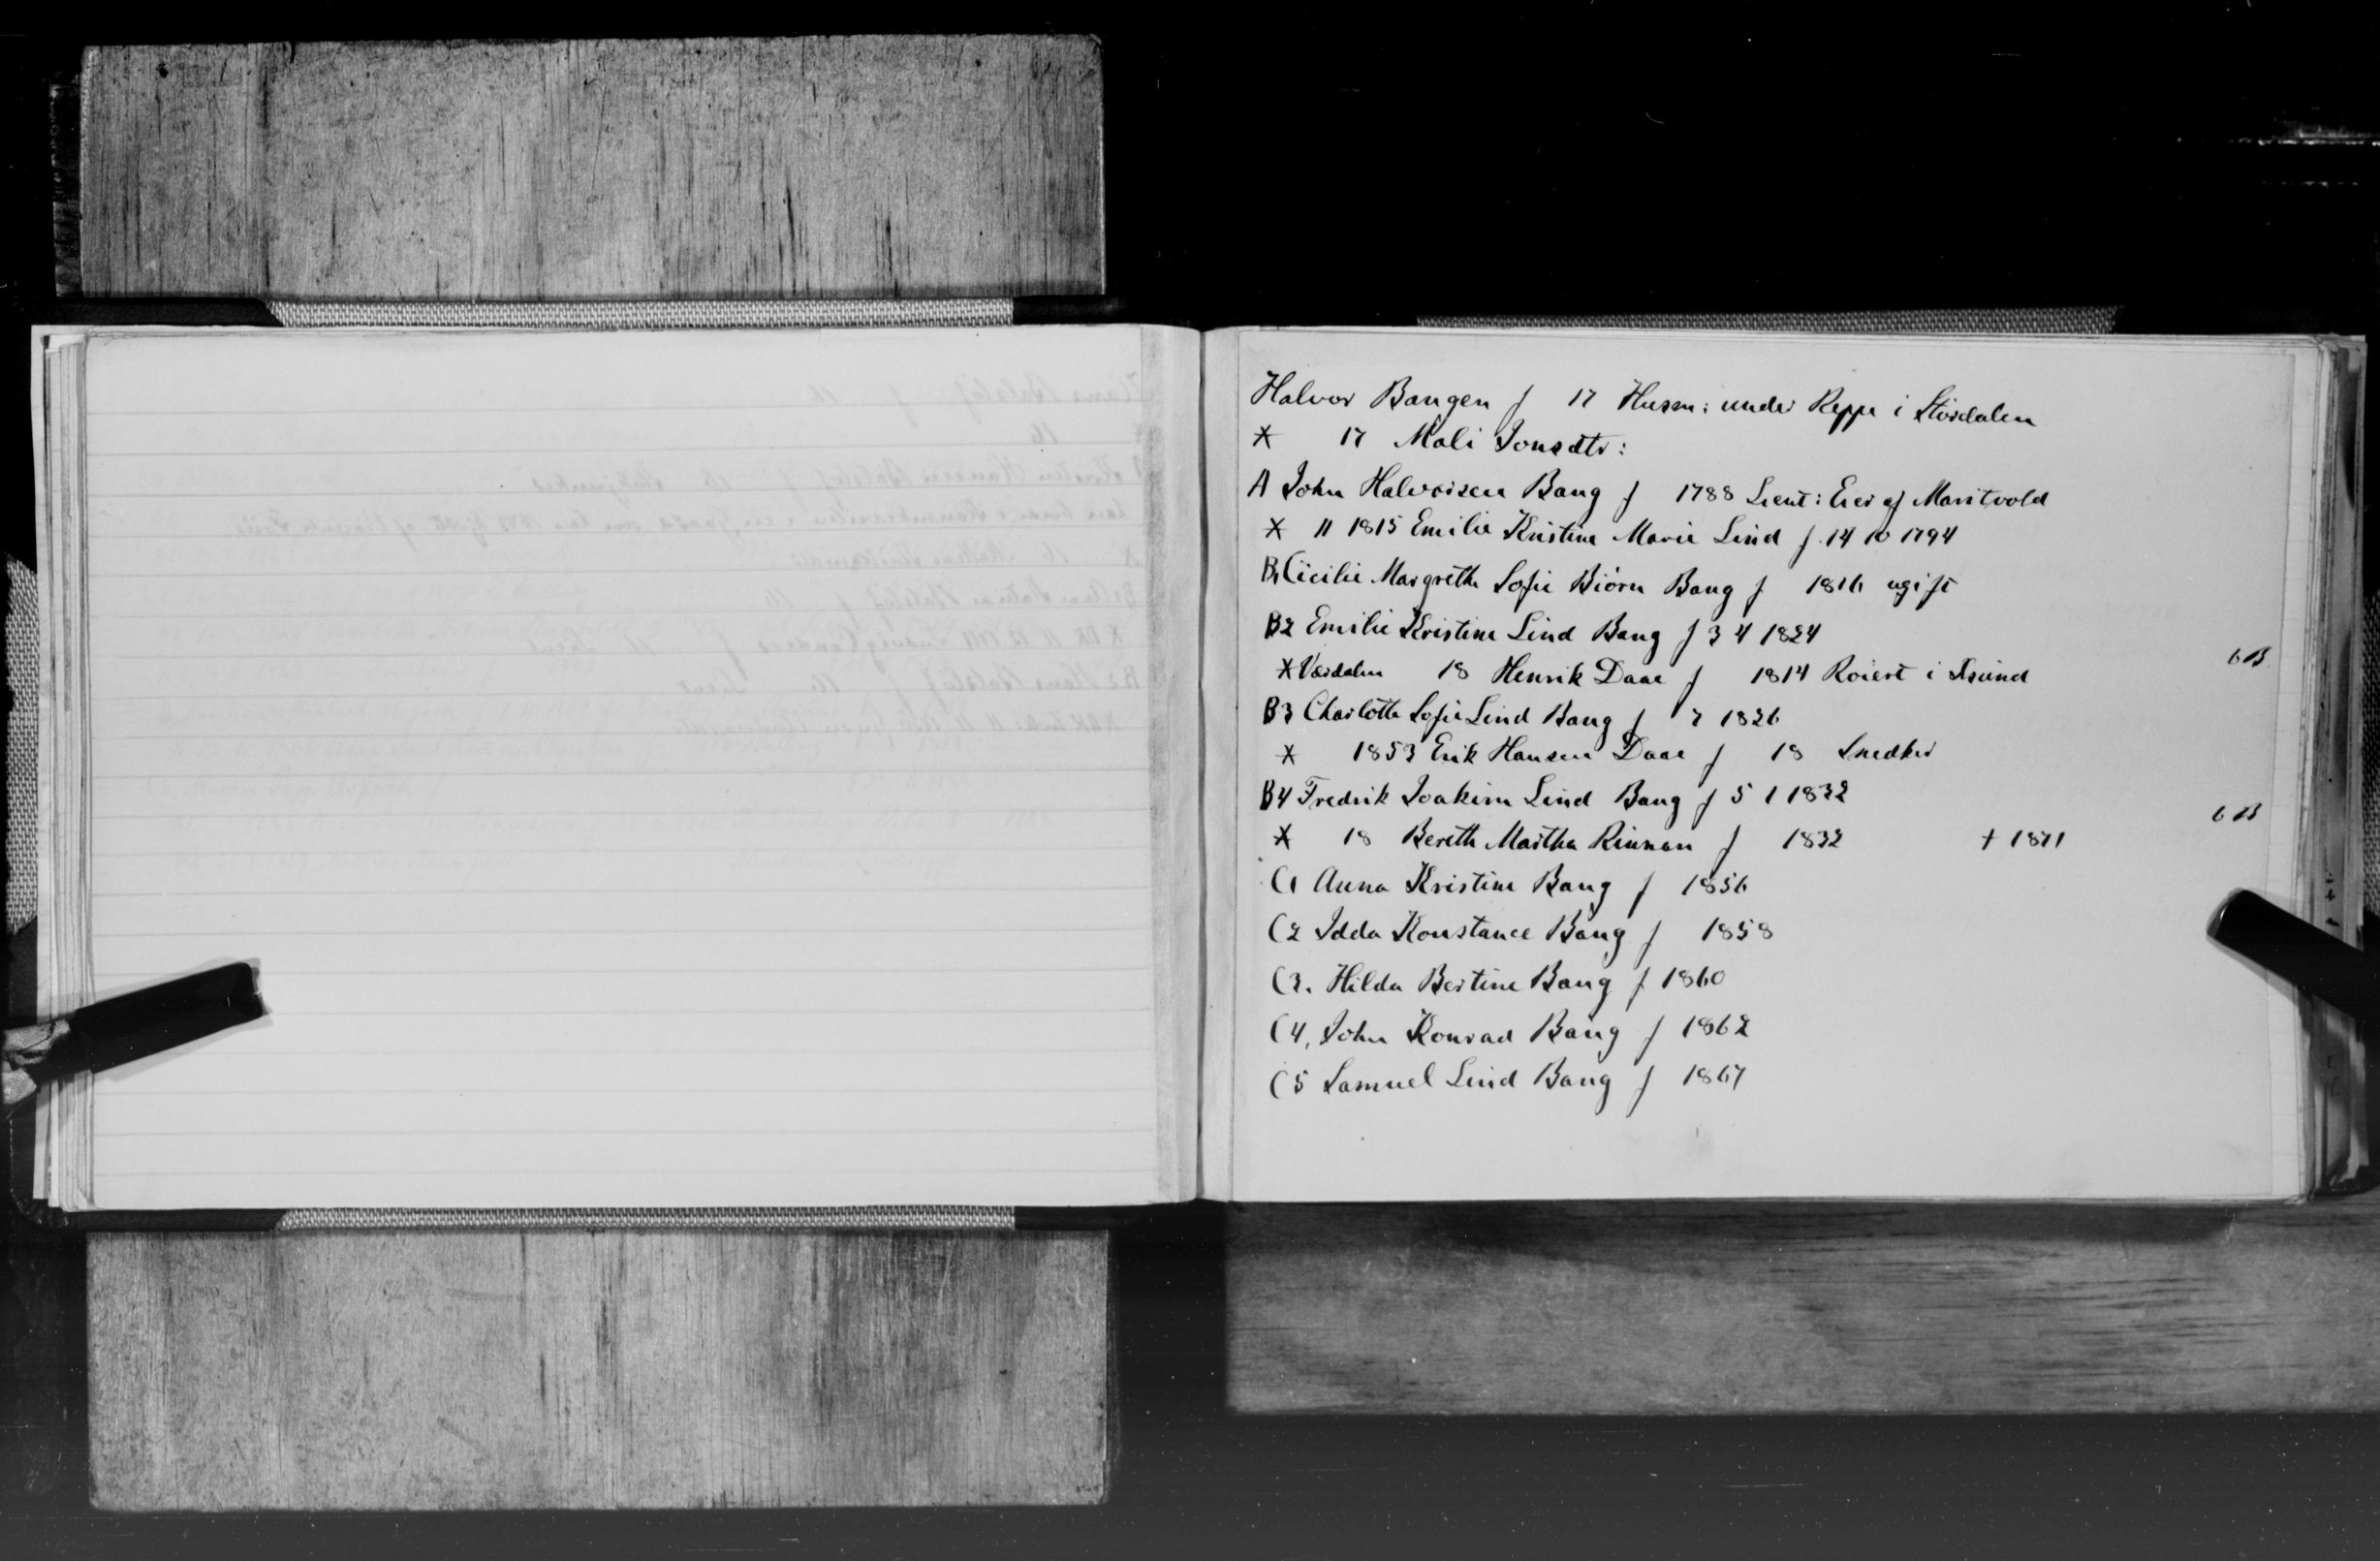 Halvor Bangen f 17 Husm: under Reppe i Stördalen
* 17 Mali Jonsdtr:
A John Halvorsen Bang f 1788 Lieut: Eier af Maritvold
* 11 1815 Emilie Kristine Marie Lind f. 14 10 1794
B1 Cicilie Margrethe Sofie Biörn Bang f 1816 ugift
B2 Emilie Kristine Lind Bang f 3 4 1824
* Værdalen 18 Henrik Daae f 1814 Roiert i Xsund 6B
B3 Charlotte Sofie Lind Bang f 7 1826
* 1853 Erik Hansen Daae f 18 Snedker
B4 Fredrik Joakim Lind Bang f 5 1 1832
6B
* 18 Bereth Martha Rinnan f 1832 + 1871
C1 Anna Kristine Bang f 1856
C2 Idda Konstance Bang f 1858
C3. Hilda Bertine Bang f 1860
C4, John Konrad Bang f 1862
C5 Samuel Lind Bang f 1867